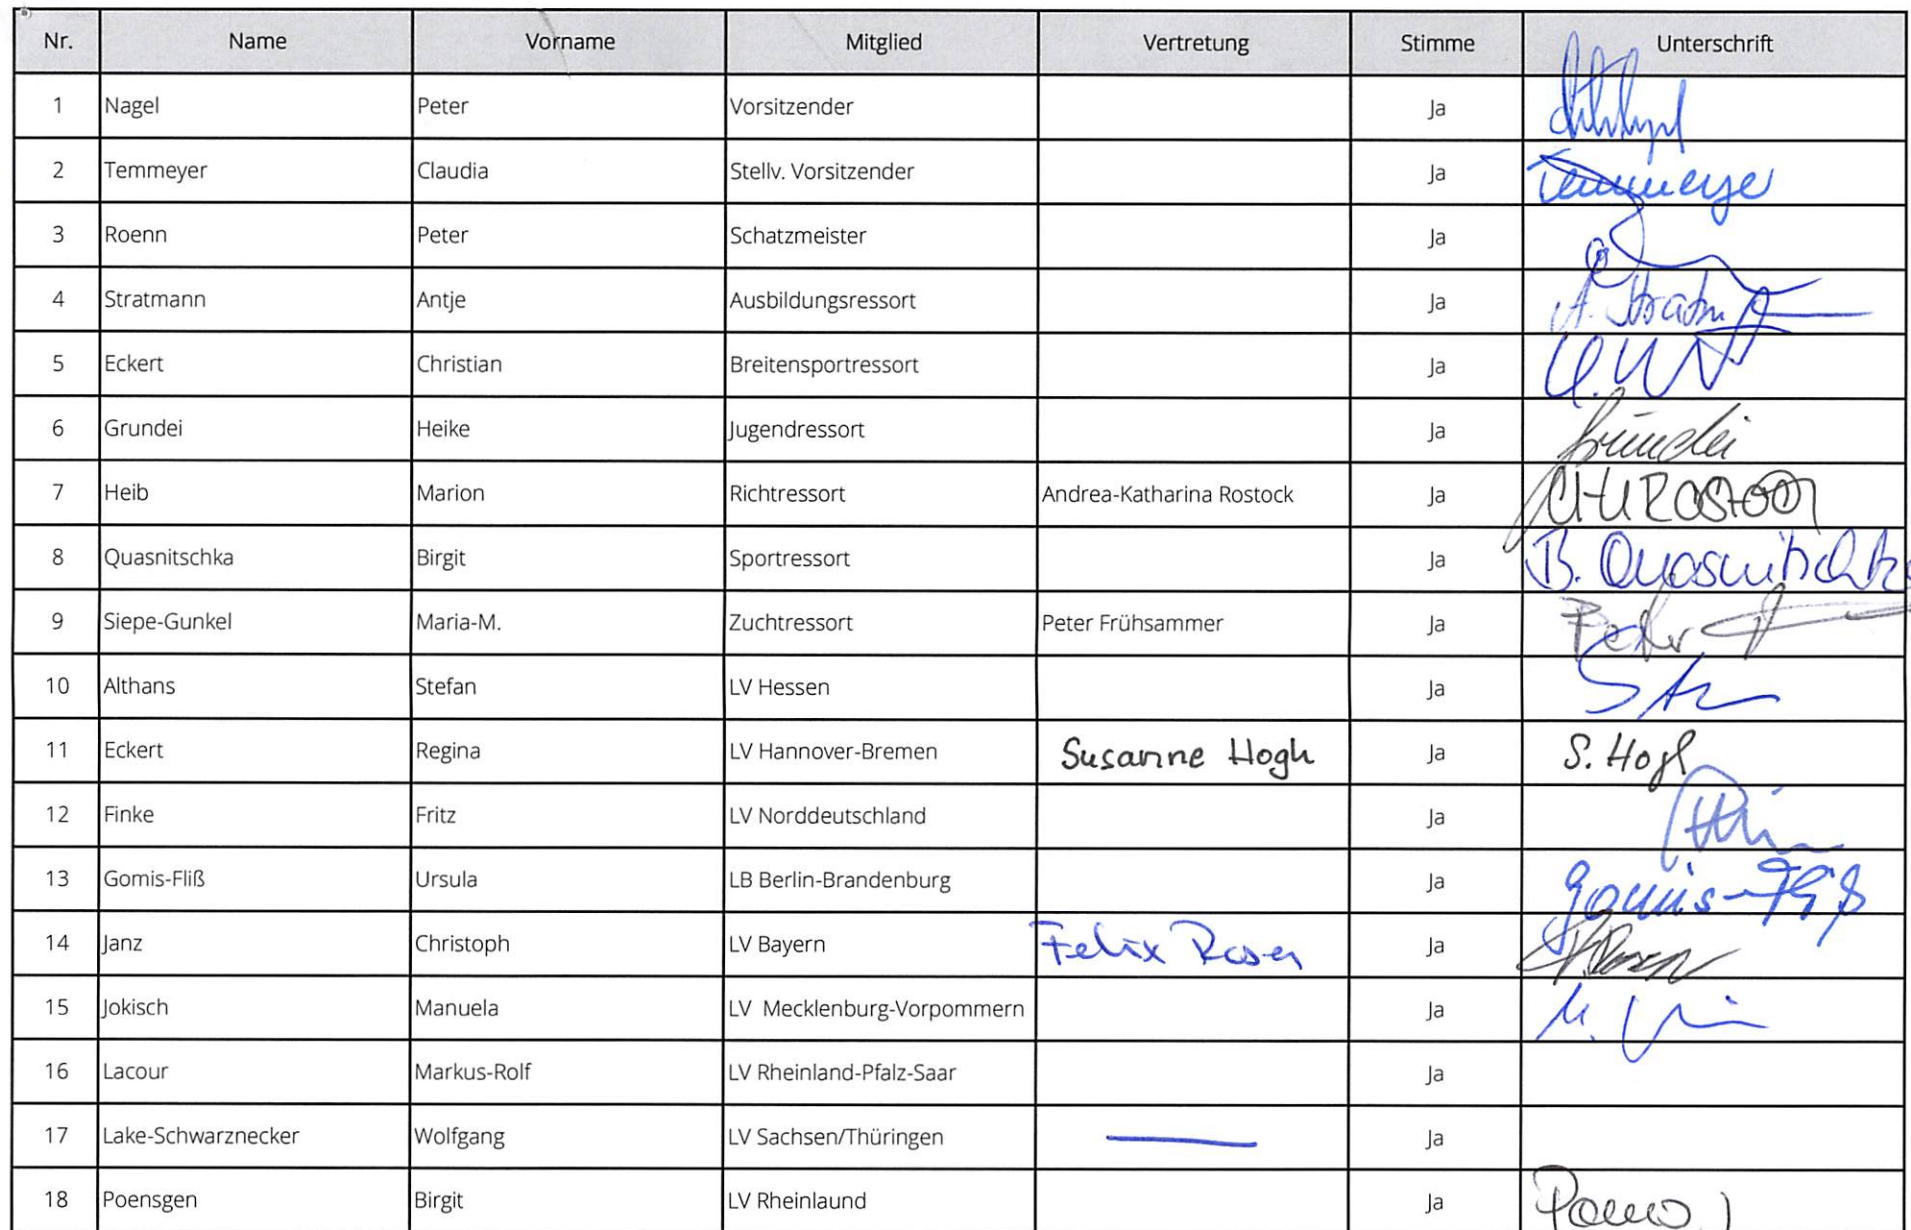 Nr. Name Vorname Mitglied Vertretung Stimme Unterschrift
1 Nagel Peter Vorsitzender Ja
2 Temmeyer Claudia Stellv. Vorsitzender Ja Temmeye
3 Roenn Peter Schatzmeister Ja
4 Stratmann Antje Ausbildungsressort Ja A. Stratm
5 Eckert Christian Breitensportressort Ja
6 Grundei Heike Jugendressort Ja Grundei
7 Heib Marion Richtressort Andrea-Katharina Rostock Ja
8 Quasnitschka Birgit Sportressort Ja B. Quasnitschka
9 Siepe-Gunkel Maria-M. Zuchtressort Peter Frühsammer Ja Peter
10 Althans Stefan LV Hessen Ja
11 Eckert Regina LV Hannover-Bremen Susanne Hogh Ja S. Hogh
12 Finke Fritz LV Norddeutschland Ja
13 Gomis-Fliß Ursula LB Berlin-Brandenburg Ja Gomis-Fliß
14 Janz Christoph LV Bayern Felix Rosen Ja
15 Jokisch Manuela LV Mecklenburg-Vorpommern Ja
16 Lacour Markus-Rolf LV Rheinland-Pfalz-Saar Ja
17 Lake-Schwarznecker Wolfgang LV Sachsen/Thüringen Ja
18 Poensgen Birgit LV Rheinlaund Ja